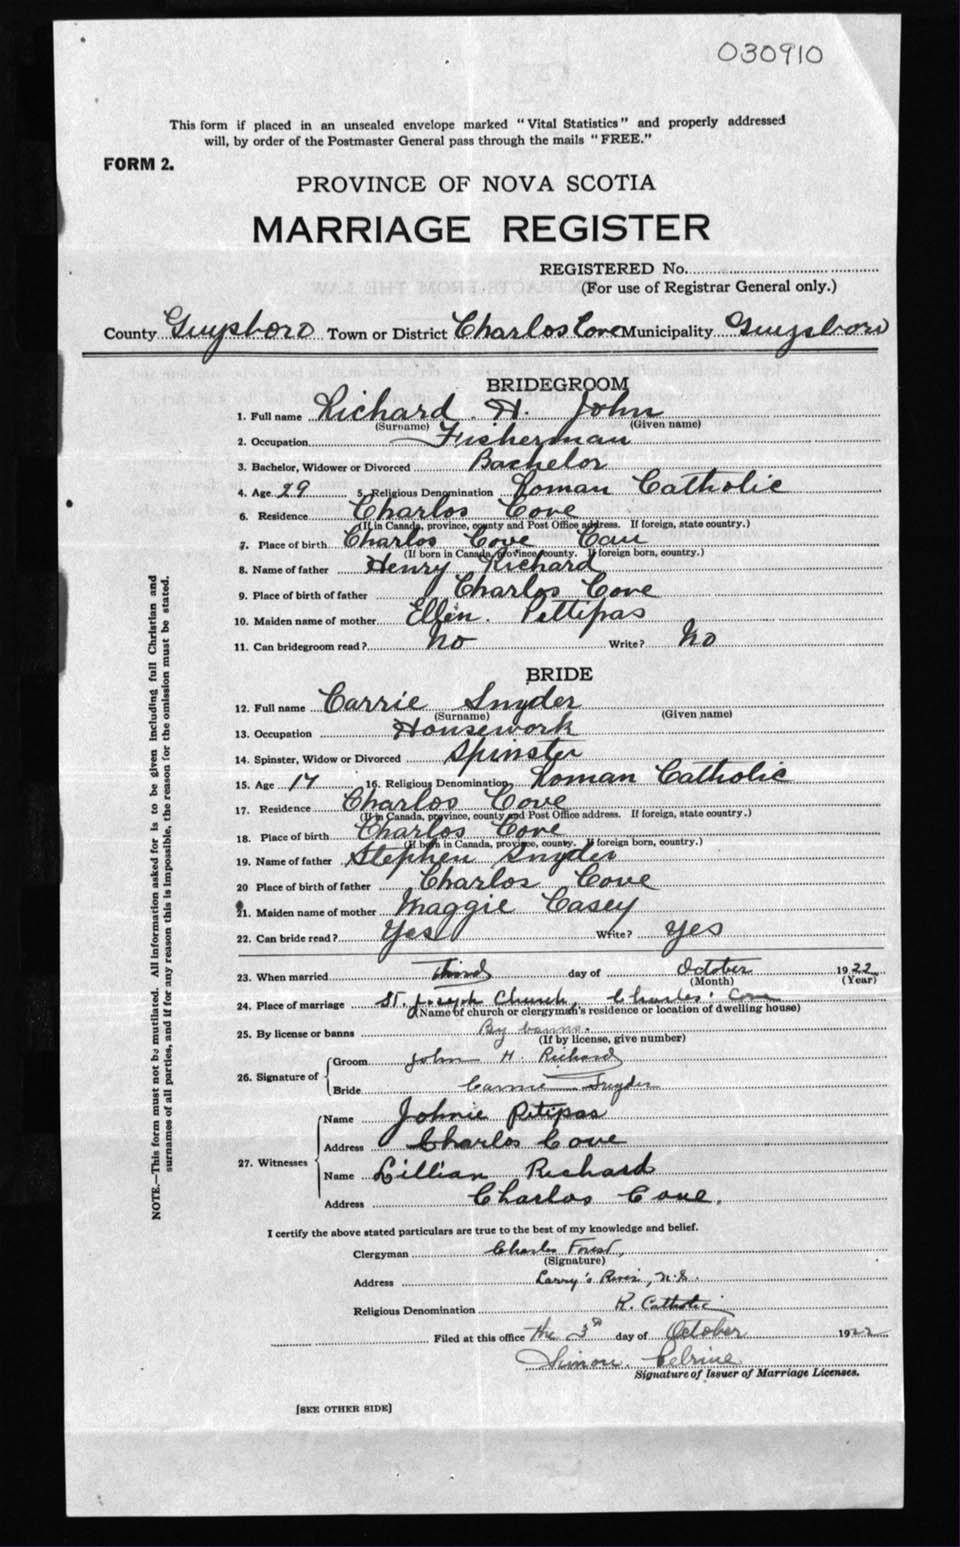 030910
This form if placed in an unsealed envelope marked "Vital Statistics" and properly addressed
will, by order of the Postmaster General pass through the mails "FREE."
FORM 2.
PROVINCE OF NOVA SCOTIA
MARRIAGE REGISTER
REGISTERED No.
(For use of Registrar General only.)
County Guysboro Town or District Charlos Cove Municipality Guysboro
BRIDEGROOM
1. Full name Richard. H. John
(Surname) (Given name)
2. Occupation Fisherman
3. Bachelor, Widower or Divorced Bachelor
4. Age 29 5. Religious Denomination Roman Catholic
6. Residence Charlos Cove
(If in Canada, province, county and Post Office address. If foreign, state country.)
7. Place of birth Charlos Cove Can
(If born in Canada, province, county. If foreign born, country.)
8. Name of father Henry Richard
9. Place of birth of father Charlos Cove
10. Maiden name of mother Ellen. Pettipas
11. Can bridegroom read? No Write? No
BRIDE
12. Full name Carrie Snyder
(Surname) (Given name)
13. Occupation Housework
14. Spinster, Widow or Divorced Spinster
15. Age 17 16. Religious Denomination Roman Catholic
17. Residence Charlos Cove
(If in Canada, province, county and Post Office address. If foreign, state country.)
18. Place of birth Charlos Cove
(If born in Canada, province, county. If foreign born, country.)
19. Name of father Stephen Snyder
20 Place of birth of father Charlos Cove
21. Maiden name of mother Maggie Casey
22. Can bride read? Yes Write? Yes
23. When married Third day of October 1922
(Month) (Year)
24. Place of marriage St. Joseph Church, Charlos' Cove
(Name of church or clergyman's residence or location of dwelling house)
25. By license or banns By banns.
(If by license, give number)
26. Signature of Groom John H. Richard
Bride Carrie Snyder
27. Witnesses Name Johnie Petipas
Address Charlos Cove
Name Lillian Richard
Address Charlos Cove.
I certify the above stated particulars are true to the best of my knowledge and belief.
Clergyman Charles Forest,
(Signature)
Address Larry's River, N.S.
Religious Denomination R. Catholic
Filed at this office the 3rd day of October 1922
Simon.
Signature of Issuer of Marriage Licenses.
[SEE OTHER SIDE]
NOTE.—This form must not be mutilated. All information asked for is to be given including full Christian and
surnames of all parties, and if for any reason this is impossible, the reason for the omission must be stated.